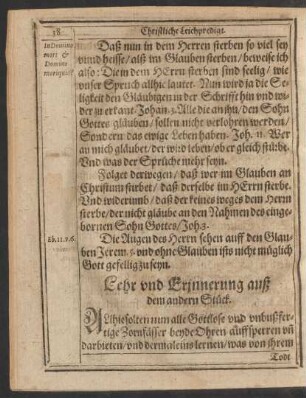 18 Christliche Leichpredigt.
In Domino
mori &
Domino
morı quid?
Daß nun in dem Herren sterben so viel sey
vnnd heisse/ alß im Glauben sterben/ beweise ich
also: Die in dem HErrn sterben sind seelig/ wie
vnser Spruch allhie lautet. Nun wird ja die Se-
ligkeit den Gläubigen in der Schrifft hin vnd wi-
der zu erkant. Johan. 3. Alle die an ihn/ den Sohn
Gottes gläuben/ sollen nicht verlohren werden/
Sondern das ewige Leben haben. Joh. 11. Wer
an mich gläubet/ der wird leben/ ob er gleich stürbe.
Vnd was der Sprüche mehr seyn.
Folget derwegen/ daß wer im Glauben an
Christum stirbet/ daß derselbe im HErrn sterbe.
Vnd widerumb/ daß der keines weges dem Herrn
sterbe/ der nicht gläube an den Nahmen des einge-
bornen Sohn Gottes/ Joh. 3.
Eb. 11. v. 6.
Die Augen des Herrn sehen auff den Glau-
ben Jerem. 5. vnd ohne Glauben ists nicht müglich
Gott gefellig zu seyn.
Lehr vnd Erjnnerung auß
dem andern Stück.
Allhie solten nun alle Gottlose vnd vnbußfer-
tige Zornfässer beyde Ohren auffsperren vñ
darbieten/ vnd dermaleins lernen/ was von ihrem
Todt